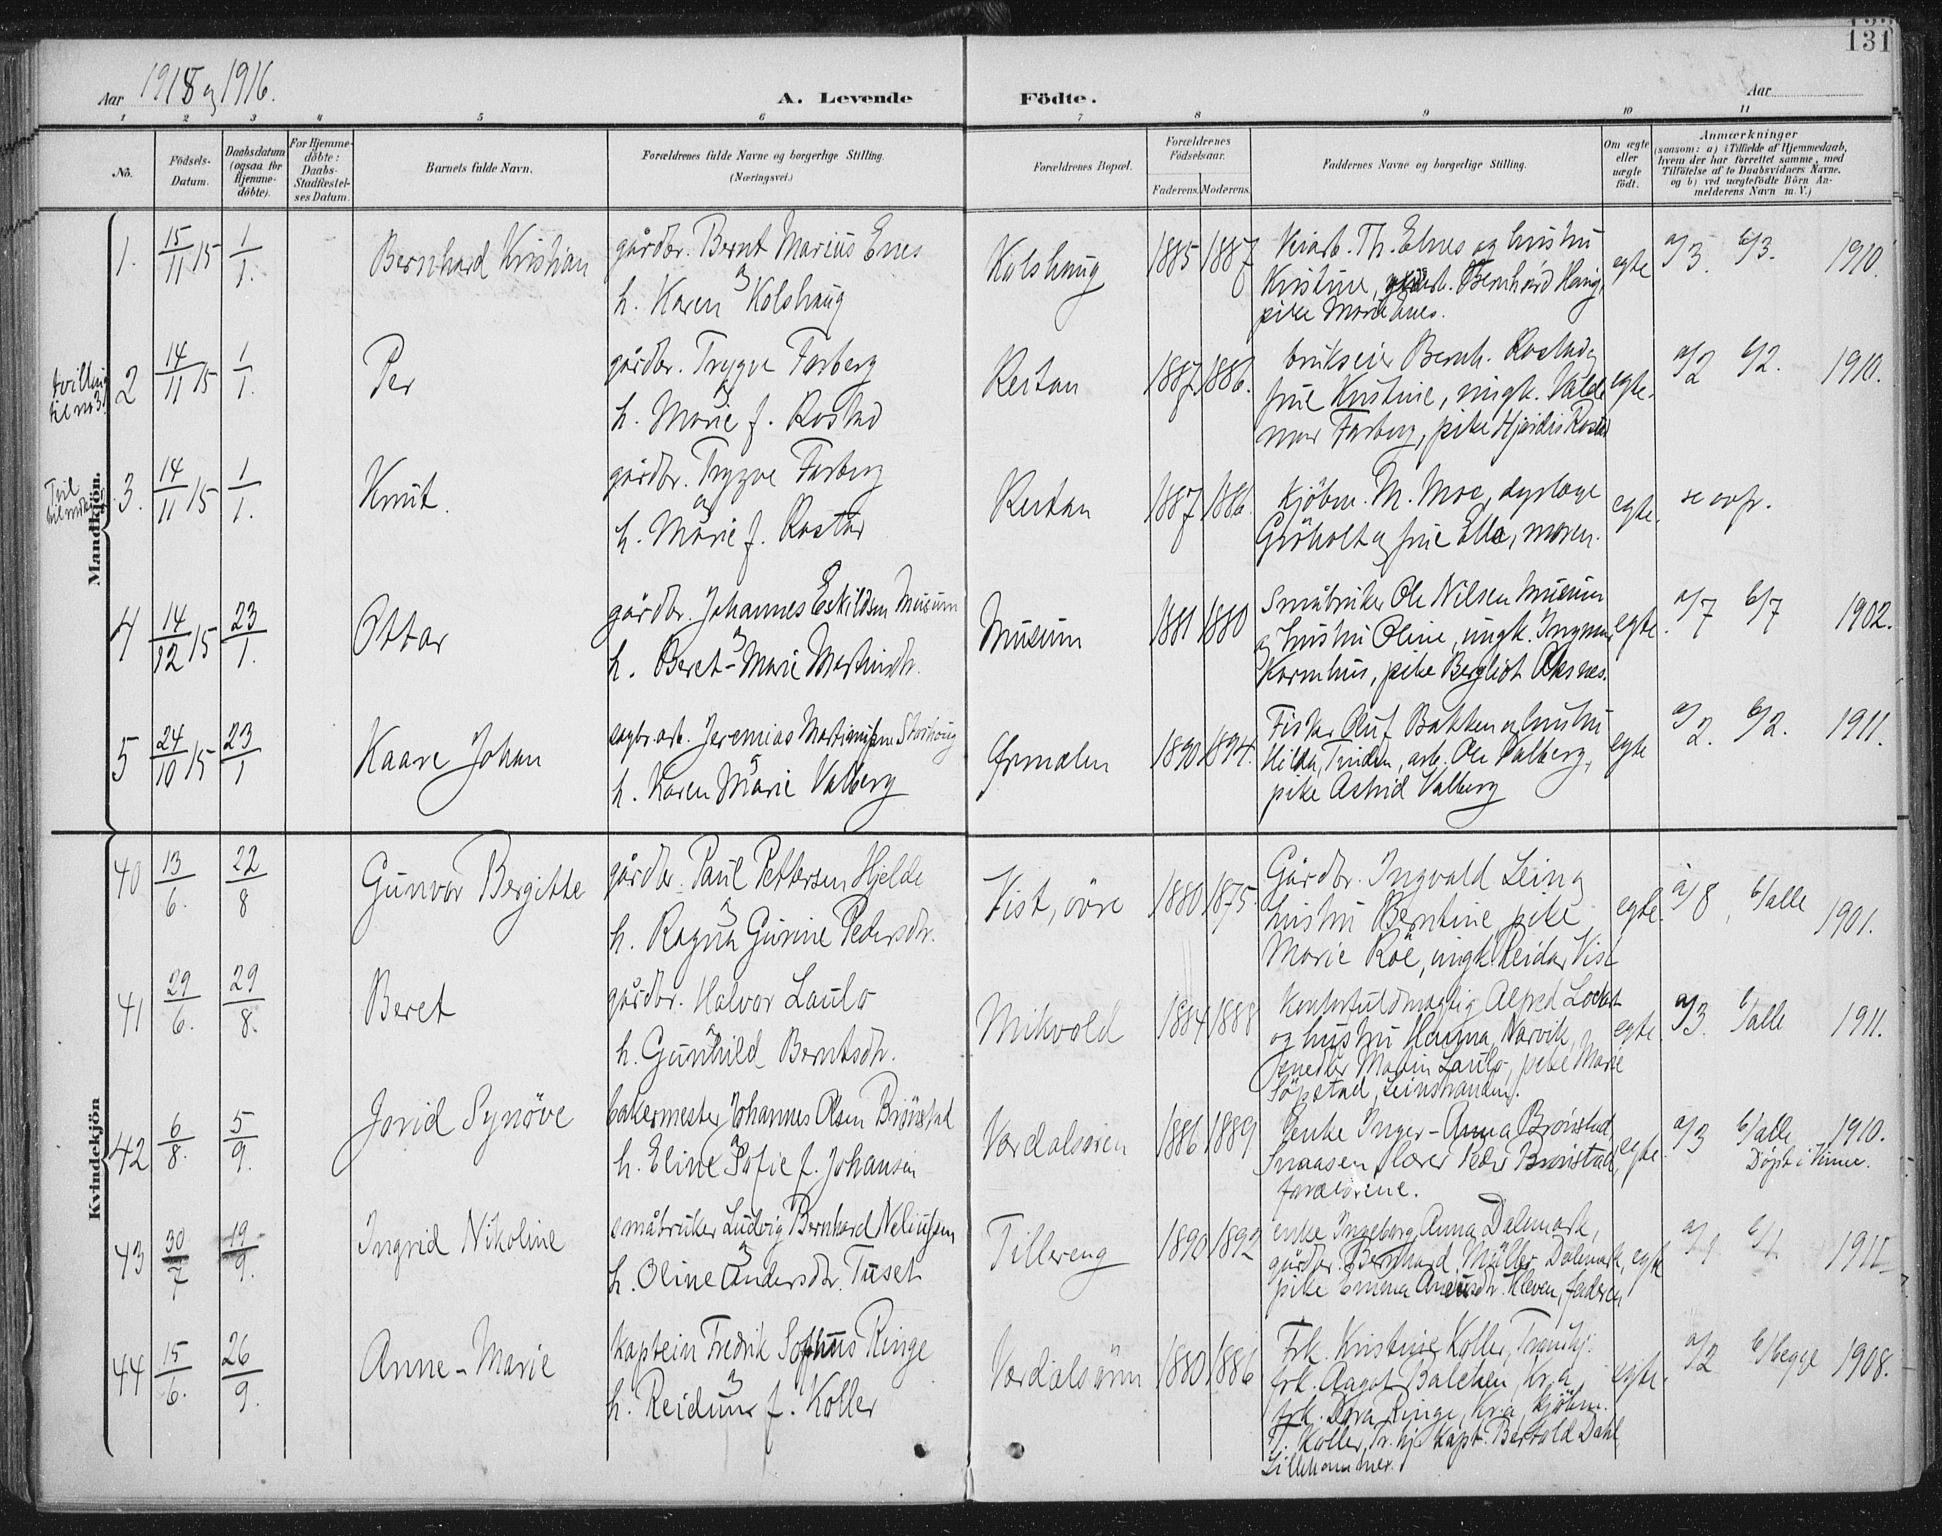 131
Aar 1915 og 1916.
A. Levende Födte.
Aar
1 2 3 4 5 6 7 8 9 10 11
No.
Födsels-Datum.
Daabsdatum (ogsaa for Hjemme-döbte).
For Hjemme-döbte: Daabs-Stadfæstel-ses Datum.
Barnets fulde Navn.
Forældrenes fulde Navne og borgerlige Stilling. (Næringsvei.)
Forældrenes Bopæl.
Forældrenes Födselsaar.
Faderens. Moderens.
Faddernes Navne og borgerlige Stilling.
Om ægte eller uægte födt.
Anmærkninger (saasom: a) i Tilfælde af Hjemmedaab, hvem der har forrettet samme, med Tilföielse af to Daabsvidners Navne, og b) ved uægtefödte Börn An-melderens Navn m. V.)
Mandkjön.
1. 15/11 15 1/1. Bernhard Kristian
gårdbr. Bernt Marius Enes
og
h. Karen Kolshaug
Kolshaug 1885 1887
Th. Elnes og hustru
Kristine, Bernhard Haug,
pike Marie Enes.
egte a/3. b/3. 1910.
tvilling til nr 3.
2 14/11 15 1/1. Per
gårdbr. Trygve Farberg
og
h. Marie f. Rostad
Reitan 1887 1886.
brukseier Bernh. Rostad og
frue Kristine, ungk. Valde
mar Farberg, pike Hjördis Rostad
egte. a/2 b/2. 1910.
3. 14/11 15 1/1. Knut.
gårdbr. Trygve Farberg
og
h. Marie f. Rostad
Reitan 1887 1886.
Kjöbm. M. Moe, dyrlæge
Gröholt og frue Ella, moren.
egte. se ovf.
4 14/12 15 23/1. Ottar
gårdbr. Johannes Eskildsen Musum
og
h. Beret-Marie Martinsdtr.
Musum 1881 1880
Småbruker Ole Nilsen Musum
og hustru Oline, ungk. Ingvar
Kornhus, pike Bergliot Aksnes.
egte. a/7 b/7 1902.
5 24/10 15 23/1 Kaare Johan
sagbr. arb. Jeremias Martiniussen Storhaug
og
h. Karen Marie Valberg
Örmelen 1890 1894.
Fisker Oluf Bakken og hustru
Hilda, Tinden, arb. Ole Valberg,
pike Astrid Valberg
egte a/2. b/2. 1911.
Kvindekjön
40 13/6. 22/8 Gunvor Bergitte
gårdbr. Paul Pettersen Hjelde
og
h. Ragna Gurine Pedersdtr.
Vist, övre 1880 1875.
Gårdbr. Ingvald Lein og
hustru Berntine, pike
Marie Röe, ungk. Reidar Vist
egte. a/8, b/alle 1901.
41 29/6. 29/8. Beret
gårdbr. Halvor Laulo
og
h. Gunhild Berntsdtr.
Mikvold 1884 1888
Kontorfuldmægtig Alfred
og hustru Hanna, Narvik,
Martin Laulo, pike Marie
Leinstranden.
egte. a/3. b/alle 1911.
42 6/8. 5/9. Jorid Synöve
bakermester Johannes Olsen Brönstad
og
h. Eline Sofie f. Johansen
Værdalsören 1886 1889
Enke Inger-Anna Brönstad,
Snaasen, lærer Peder Brönstad,
forældrene.
egte. a/3 b/alle 1910.
Döpt i Vinne.
43 30/7 19/9. Ingrid Nikoline
småbruker Ludvig Bernhard Neliussen
og
h. Oline Andersdtr. Tuset
Tillereng 1890 1892
enke Ingeborg Anna Dalemark,
gårdbr. Bernhard Müller Dalemark,
pike Emma Kleven, faderen
egte a/1 b/1. 1915
44 15/6. 26/9. Anne-Marie
kaptein Fredrik Sophus Ringe
og
h. Reidun f. Koller
Værdalsören 1880 1886
Frk. Kristine Koller, Trondhj.
frk. Aagot Balchen, Kr.a
frk. Dora Ringe, Kr.a, kjöbm.
Koller, Tr.hj. Kapt. Bertold Dahl,
Lillehammer.
egte. a/2 b/begge 1908.